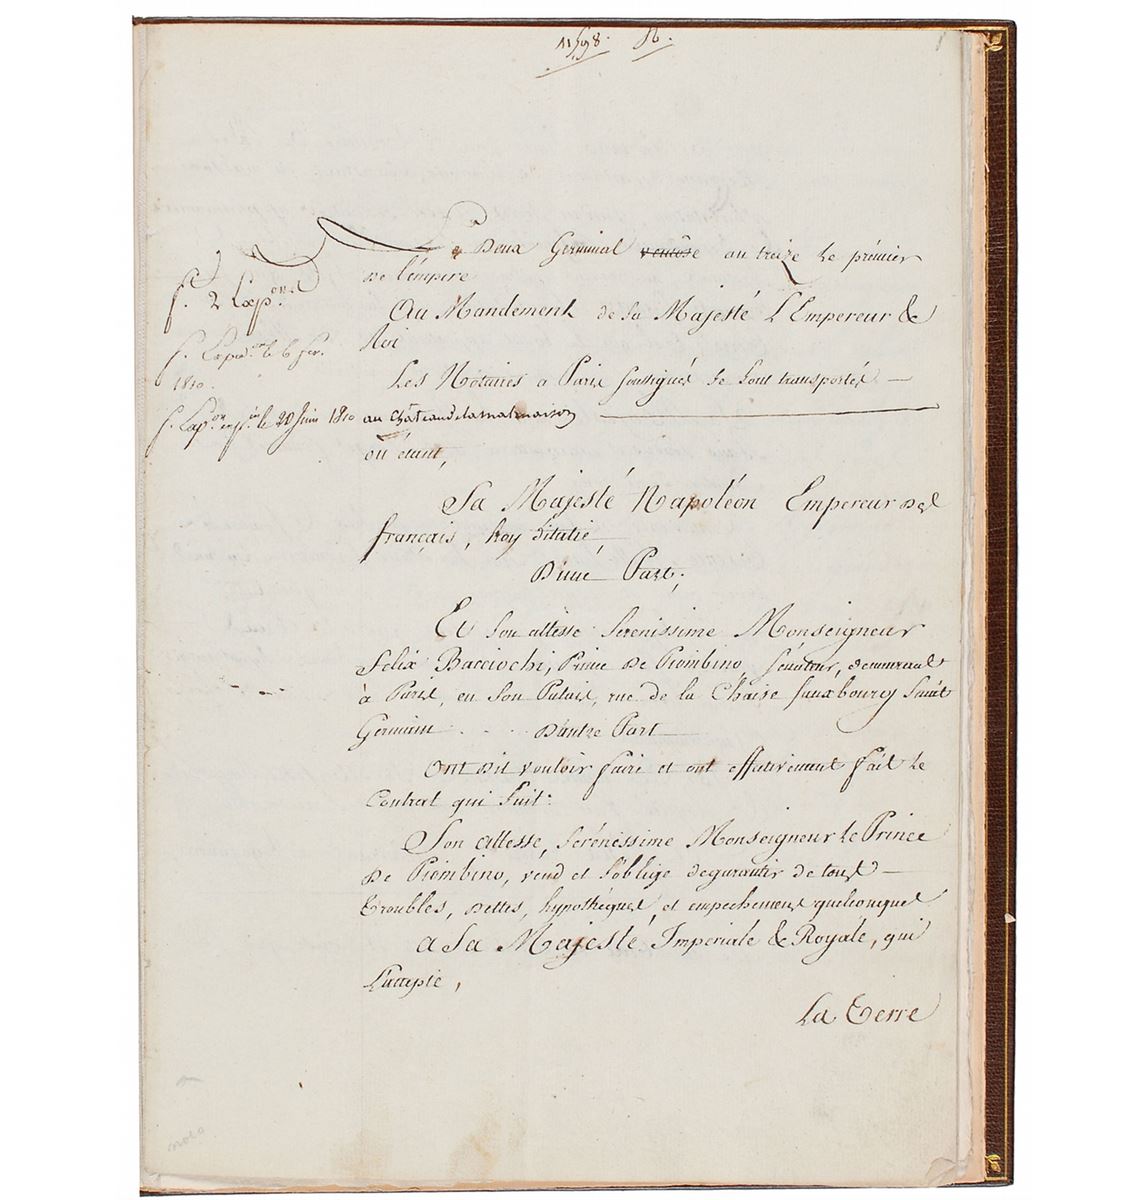 11598.
Deux Germinal ventôse an treize Le prémier
De L'empire
f. 2 Exp.on
Au Mandement de Sa Majesté L'Empereur &
Roi
Les Notaires a Paris soussignés se sont transportés —
1810.
le 20 Juin 1810 au Château de la malmaison
où étant,
Sa Majesté Napoléon Empereur des
français, Roy d'italie,
D'une Part;
Et Son altesse Serenissime Monseigneur
Felix Bacciochi, Prince De Piombino, Sénateur, demeurant
à Paris, en Son Palais, rue de la Chaise fauxbourg Saint
Germain . . . . D'autre Part
Ont Dit vouloir faire et ont effectivement fait Le
Contrat qui Suit:
Son altesse, Serénissime Monseigneur Le Prince
De Piombino, vend et S'oblige de garantir de tous —
Troubles, Dettes, hypothéques, et empechemens quelconques
a Sa Majesté Imperiale & Royale, qui
L'accepte,
La Terre